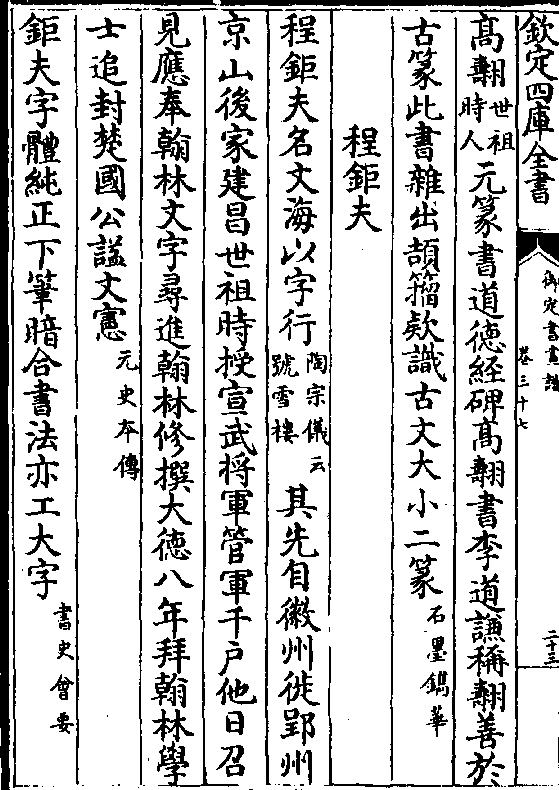 欽定四庫全書
御定書畫譜
卷三十七
二十三
高翿世祖時人元篆書道德經碑高翿書李道謙稱翿善於
古篆此書雜出頡籀欵識古文大小二篆石墨鐫華
程鉅夫
程鉅夫名文海以字行陶宗儀云號雪樓其先自徽州徙郢州
京山後家建昌世祖時授宣武將軍管軍千戶他日召
見應奉翰林文字尋進翰林修撰大德八年拜翰林學
士追封楚國公諡文憲元史本傳
鉅夫字體純正下筆暗合書法亦工大字書史會要